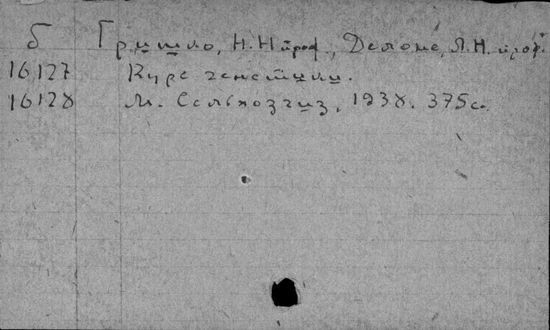 Б Гришко, Н.Н проф., Делоне, Л.Н. проф.
16127 Курс генетики.
16128 М. Сельхозгиз, 1938. 375 с.